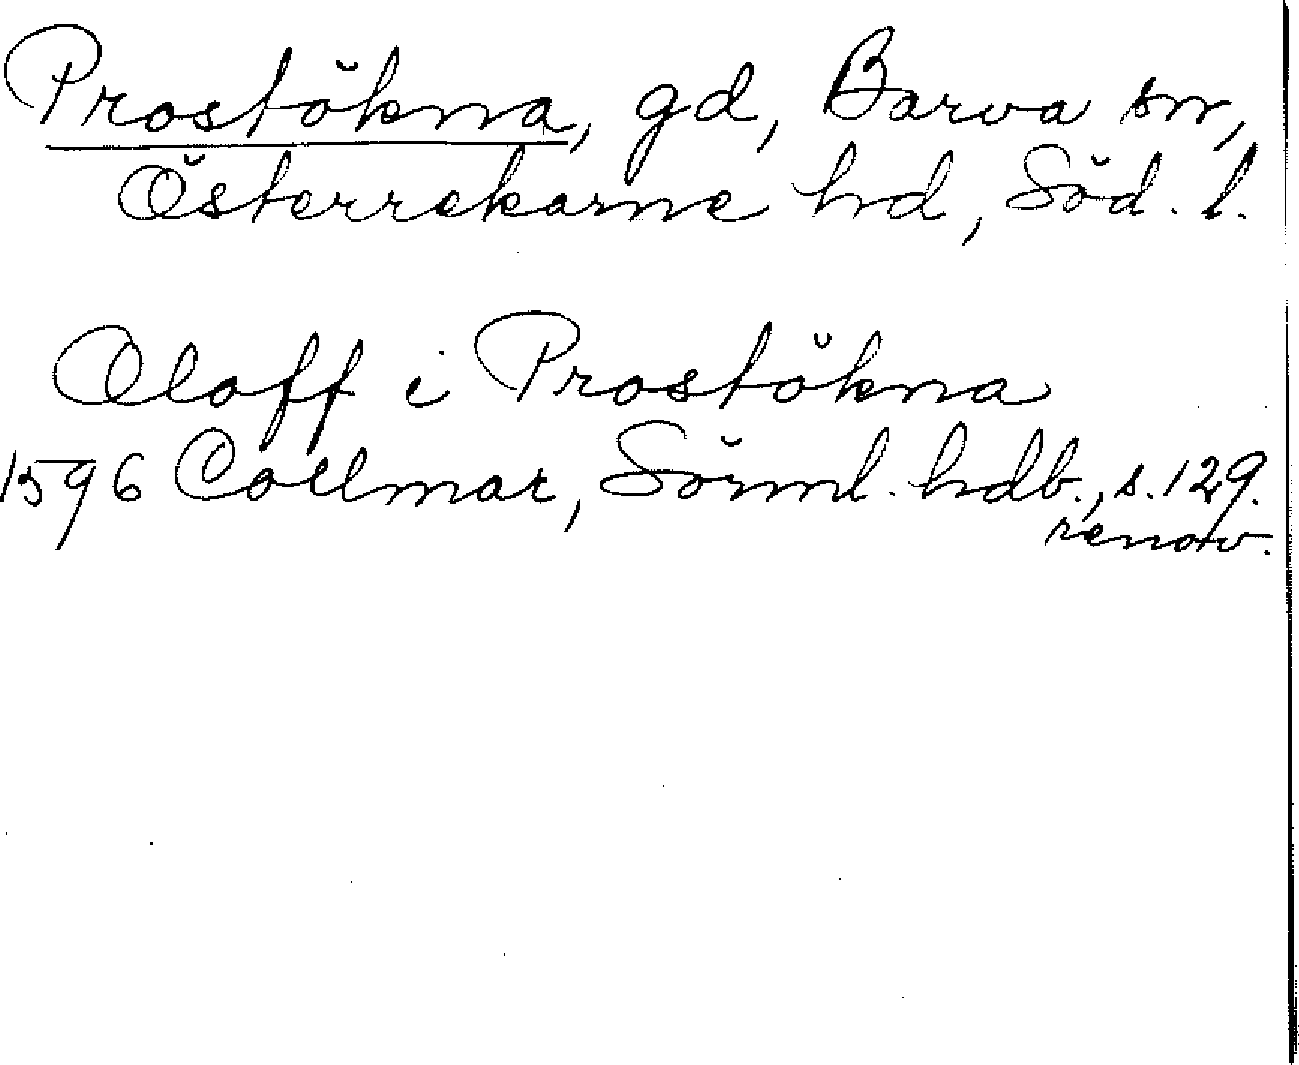 Prostökna, gd, Barva sn,
Österrekarne hd, Söd. l.
Oloff i Prostökna
1596 Collmar, Sörml. hdb., s. 129.
renov.